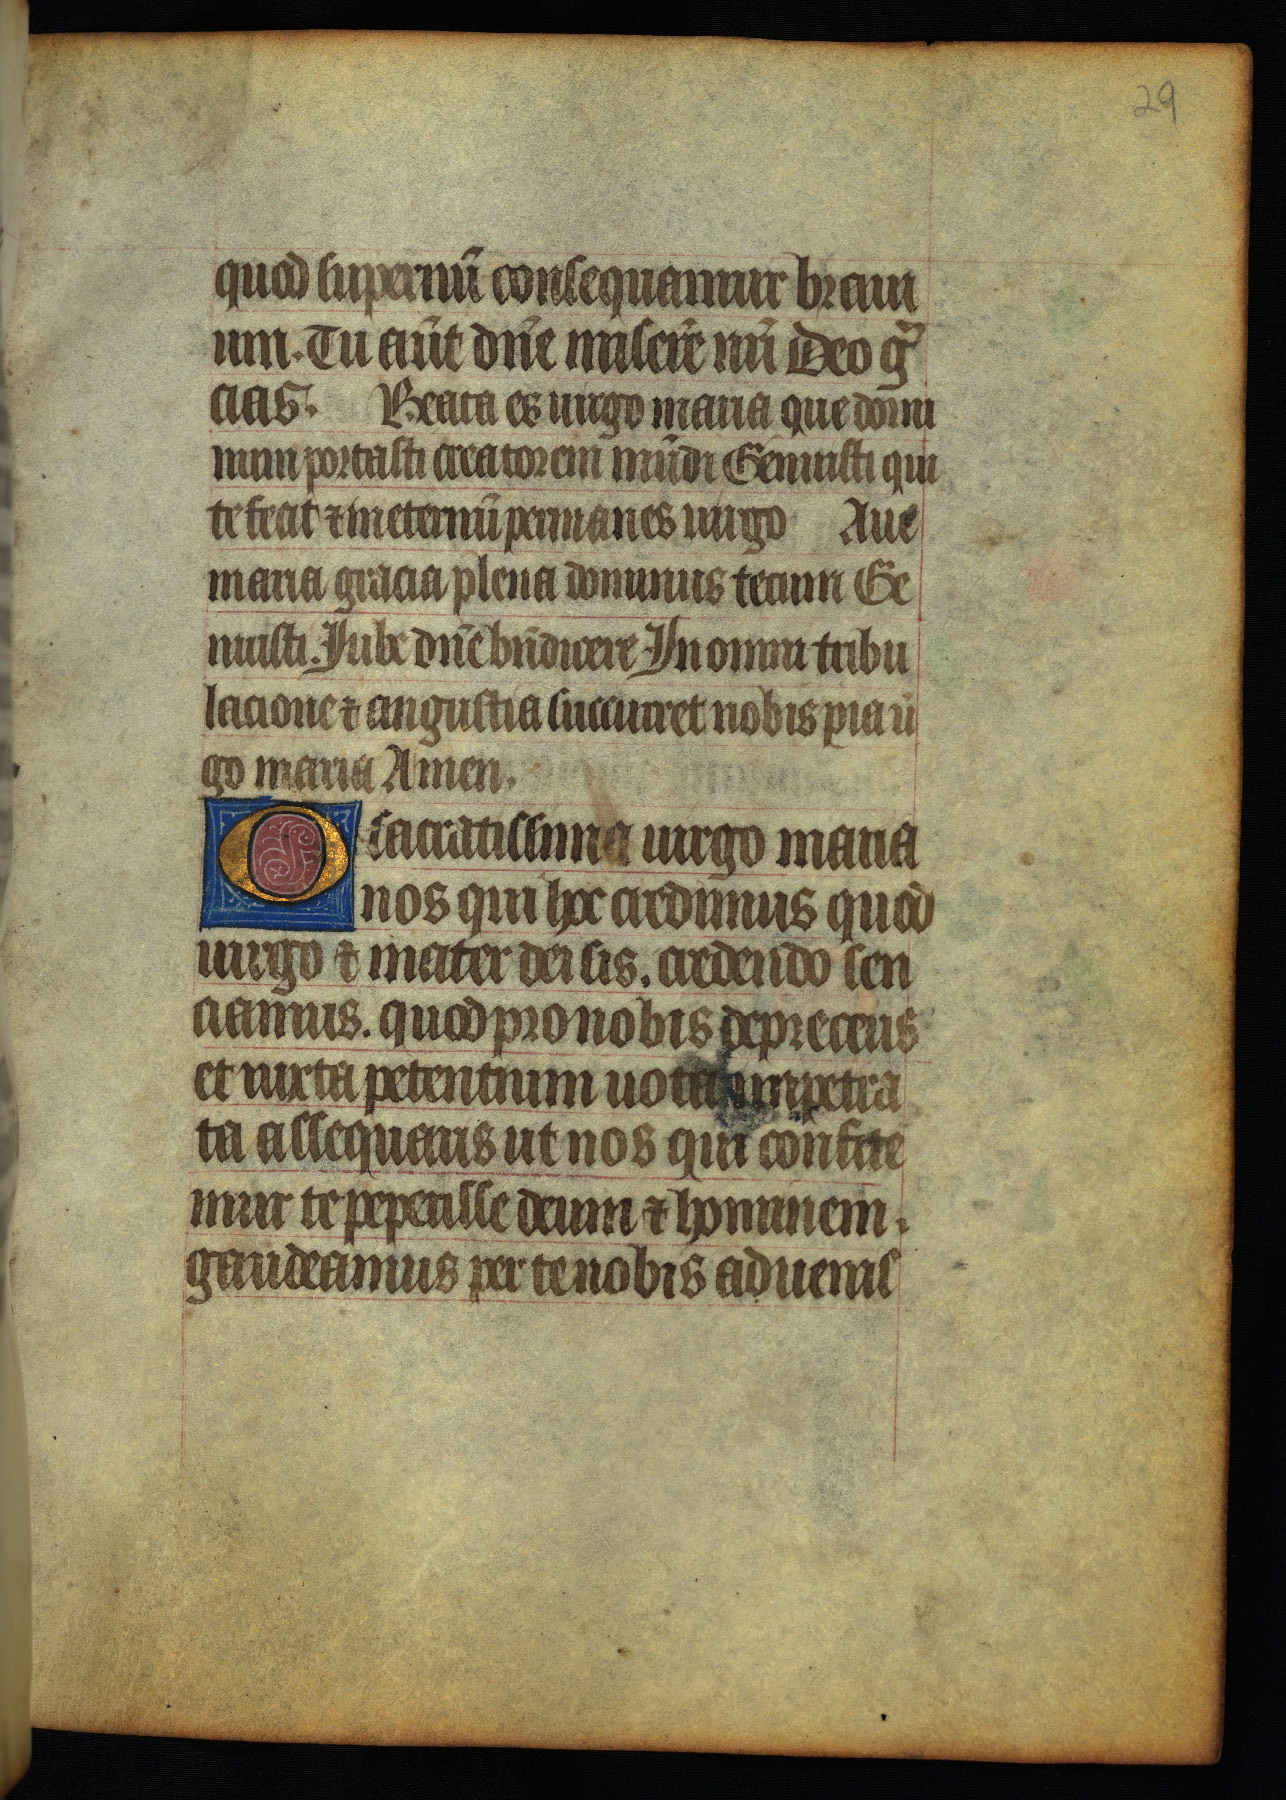 29
quod supernū consequamur braui
um. Tu aūt dn̄e miserē nr̄i Deo gr̄a
cias. Beata es uirgo maria que domi
num portasti creatorem mūdi Genuisti qui
te fecit ⁊ in eternū permanes uirgo Aue
maria gracia plena dominus tecum Ge
nuisti. Jube dn̄e bn̄dicere In omni tribu
lacione ⁊ angustia succurret nobis pia ū
go maria Amen.
O sacratissima uirgo maria
nos qui hoc credimus quod
uirgo ⁊ mater dei sis. credendo sen
ciamus. quod pro nobis depreceris
et iuxta petentium uota impetra
ta assequaris ut nos qui confite
mur te peperisse deum ⁊ hominem.
gaudeamus per te nobis aduenis